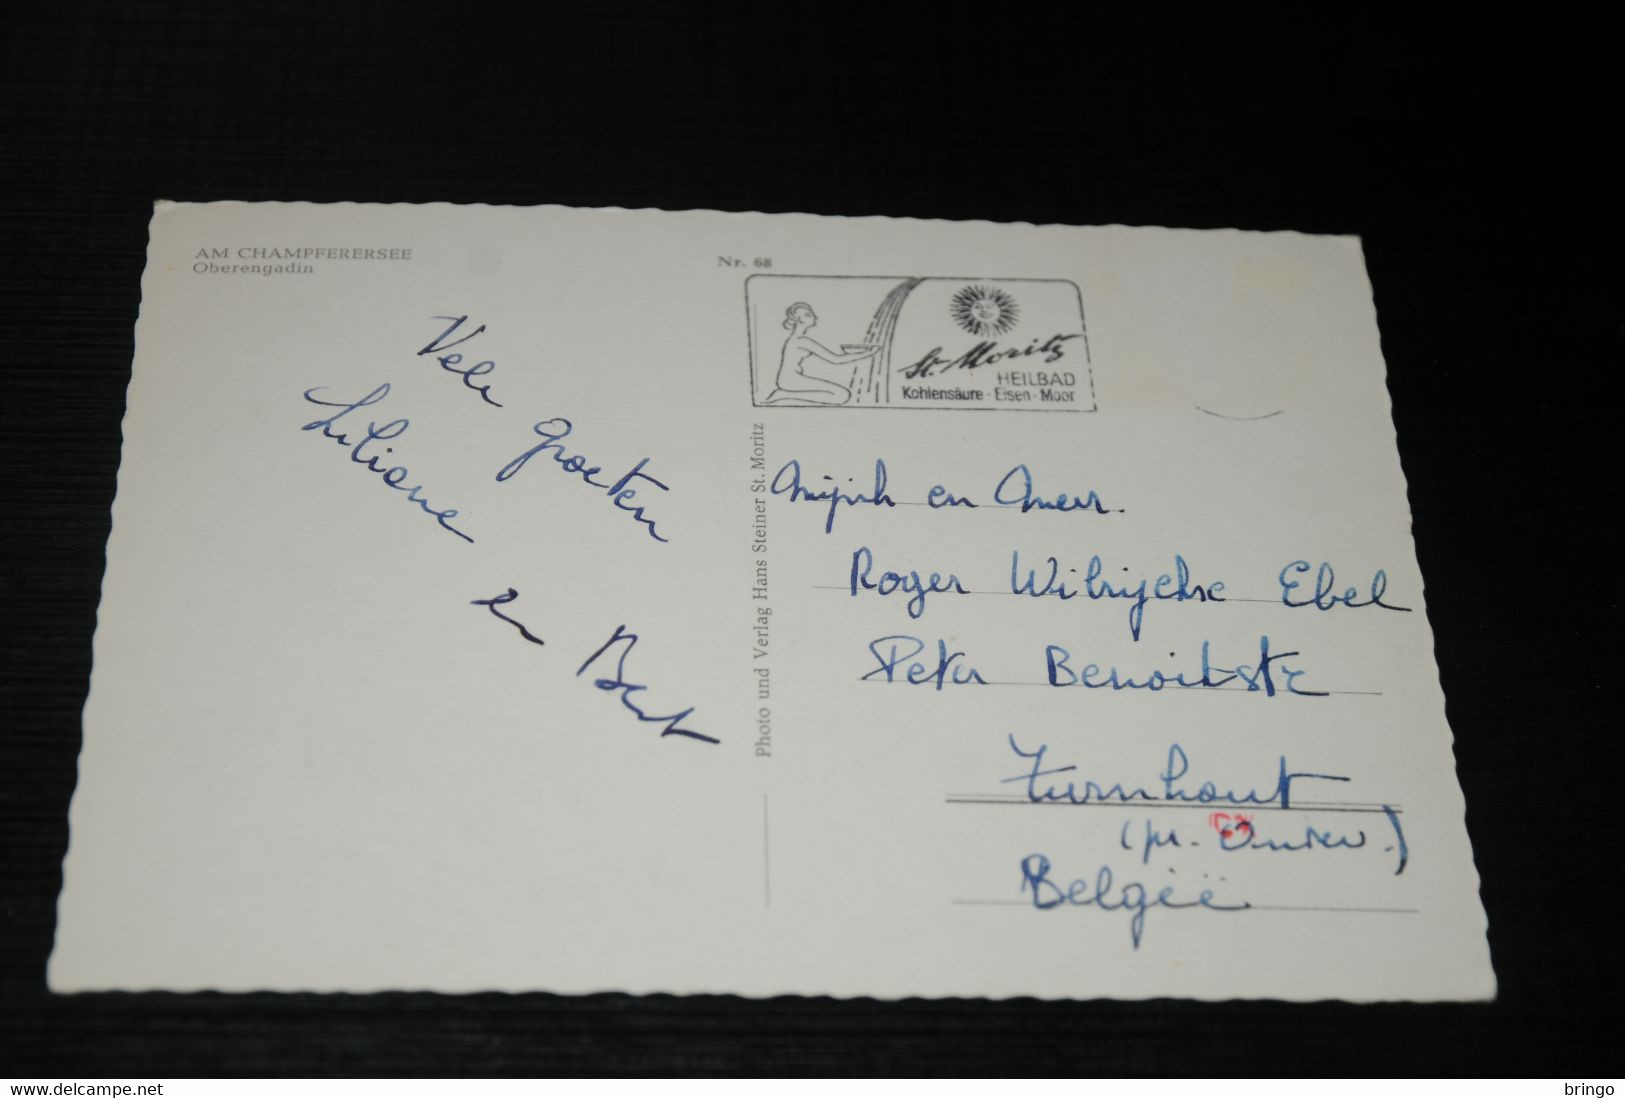 AM CHAMPFERERSEE
Oberengadin
Nr. 68
St. Moritz
HEILBAD
Kohlensäure · Eisen · Moor
Vele groeten
Liliane
en Bert
Photo und Verlag Hans Steiner St. Moritz
en Mevr.
Roger Wilrijckse Ebel
Peter Benoitstr
Turnhout
België
www.delcampe.net
bringo